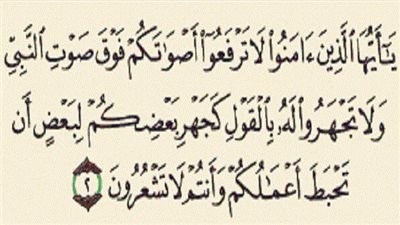 يَٰٓأَيُّهَا ٱلَّذِينَ ءَامَنُوا۟ لَا تَرْفَعُوٓا۟ أَصْوَٰتَكُمْ فَوْقَ صَوْتِ ٱلنَّبِىِّ
وَلَا تَجْهَرُوا۟ لَهُۥ بِٱلْقَوْلِ كَجَهْرِ بَعْضِكُمْ لِبَعْضٍ أَن
تَحْبَطَ أَعْمَٰلُكُمْ وَأَنتُمْ لَا تَشْعُرُونَ ٢